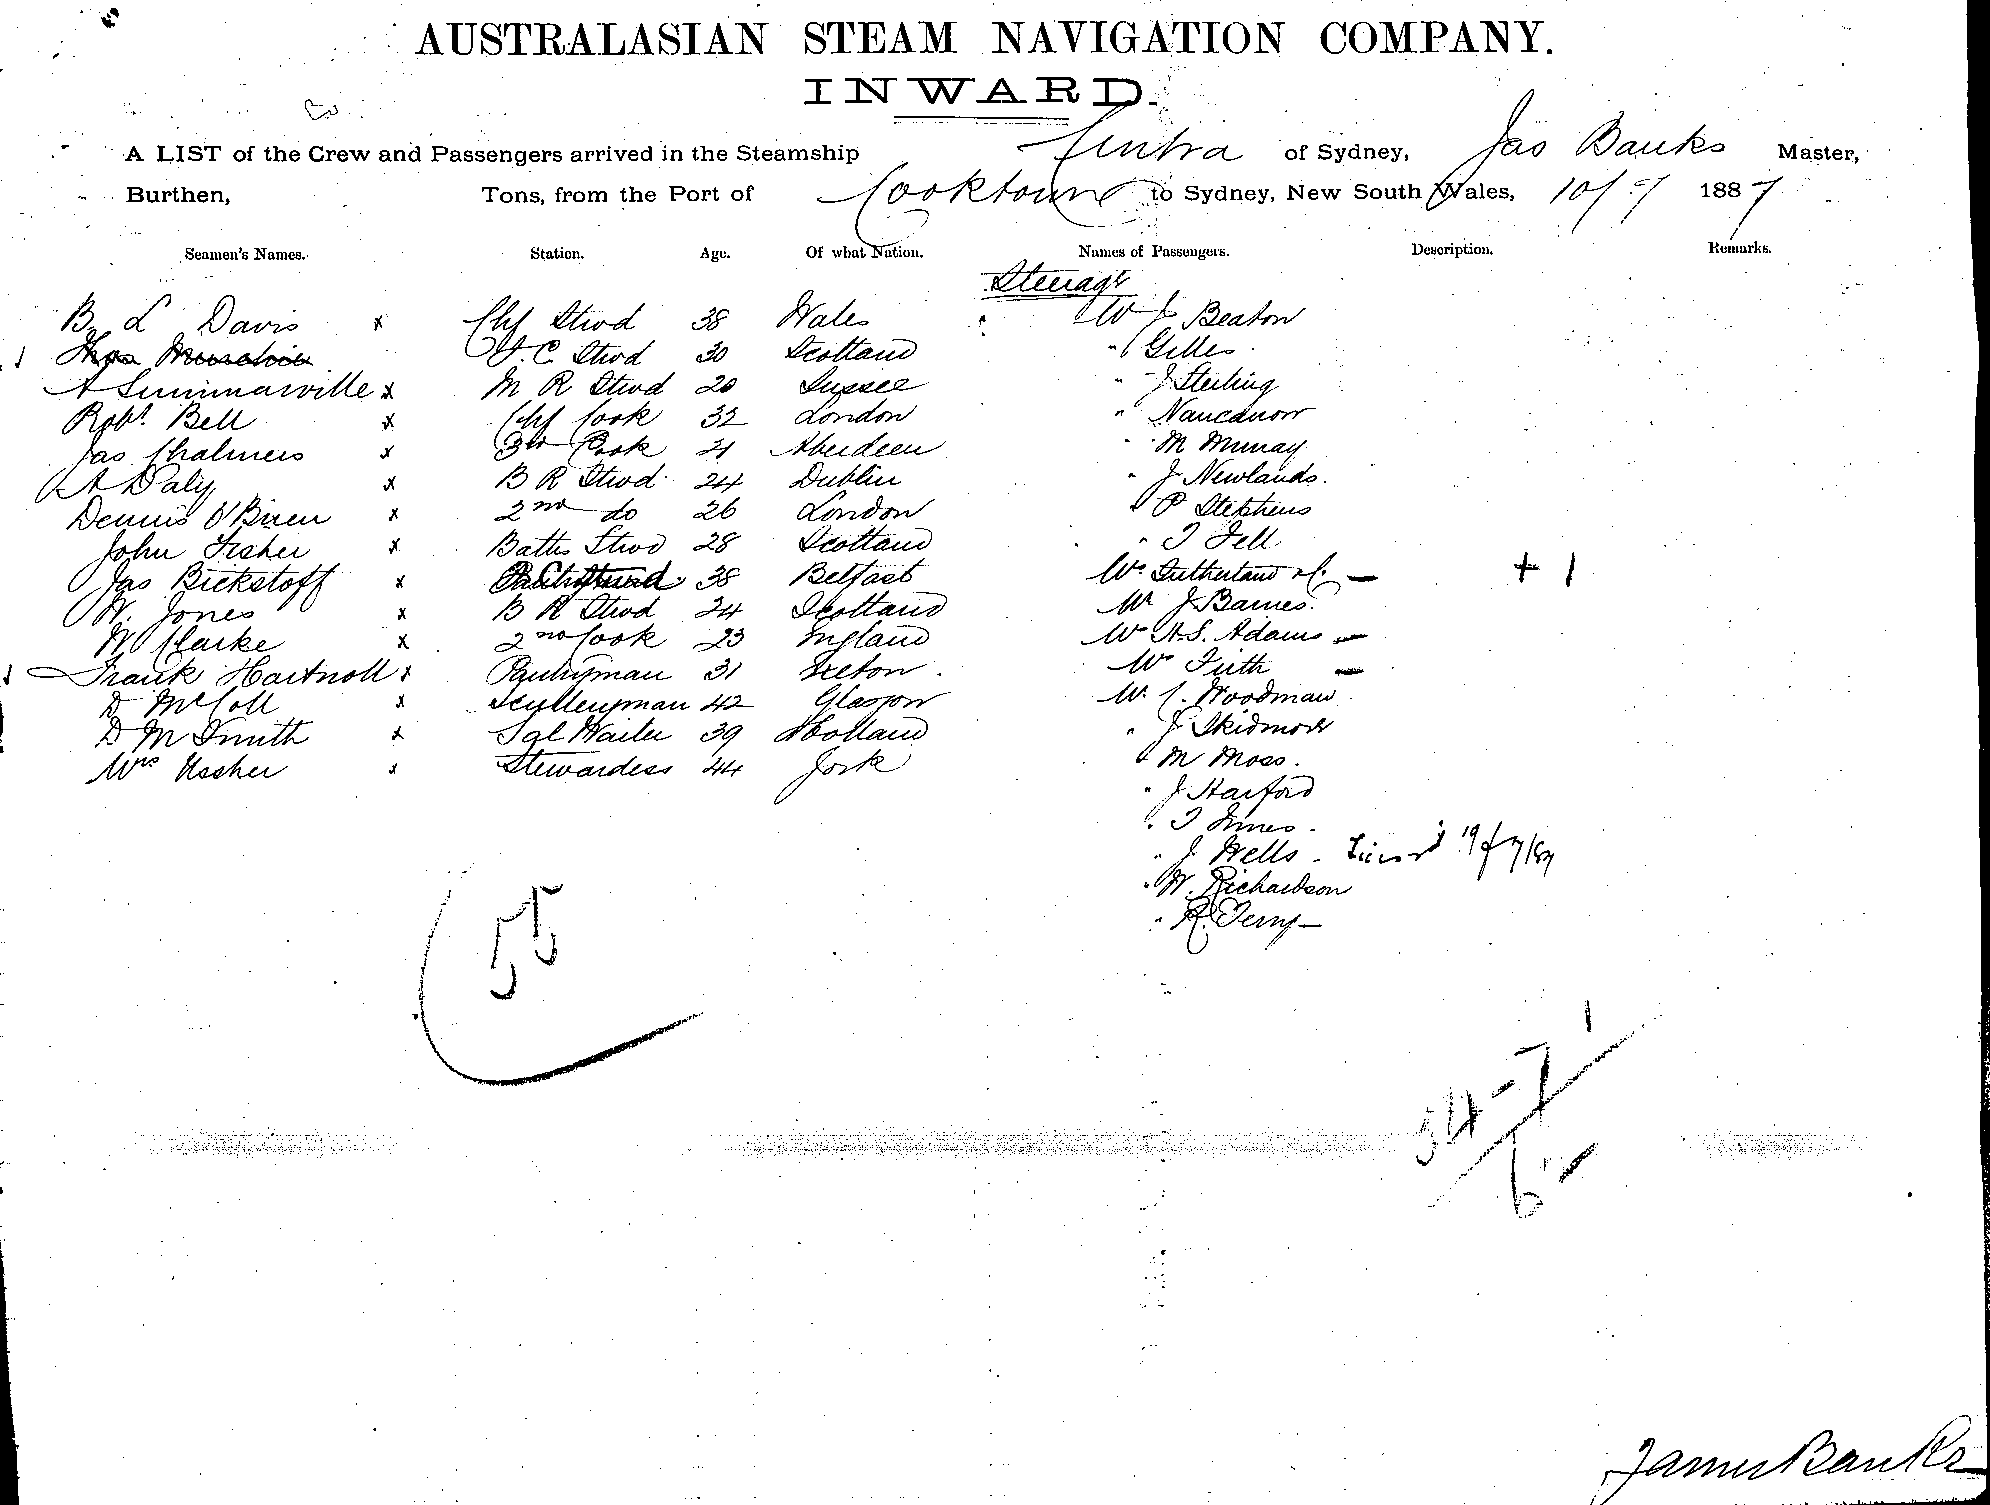 AUSTRALASIAN STEAM NAVIGATION COMPANY.
INWARD.
A LIST of the Crew and Passengers arrived in the Steamship Cintra of Sydney, Jas Banks Master,
Burthen, Tons, from the Port of Cooktown to Sydney, New South Wales, 10/7/ 1887
Seamen's Names. Station. Age. Of what Nation. Names of Passengers. Description. Remarks.
Steerage
B L Davis x Chf Stwd 38 Wales W J Beaton
F.C. Stwd 30 Scotland " Gilles
A Summarville x M R Stwd 20 " J Sterling
Robt. Bell x Chf Cook 32 London "
Jas Chalmers x 3rd Cook 21 Aberdeen " M Murray
A Daly x B R Stwd 24 Dublin " J Newlands.
Dennis O'Brien x 2nd do 26 London " P Stephens
John Fisher x Baths Stwd 28 Scotland " T Fell
Jas Bickstoff x 38 Belfast Mr Sutherland + 1
W. Jones x B R Stwd 24 Scotland Mr J Barnes.
W Clarke x 2nd Cook 23 England Mr A.S. Adams -
Frank Hartnoll x Pantryman 31 Mr Firth -
D McColl x Sculleryman 42 Glasgow Mr C. Woodman
D M Smith x Sal Waiter 39 Holland " J Skidmore
Mrs Ussher x Stewardess 44 " M Moss.
" J Harford
" T Innes.
" J Wells - 19/7/87
" W. Richardson
" R. Terry -
55
1
54 - 7
6
James Banks